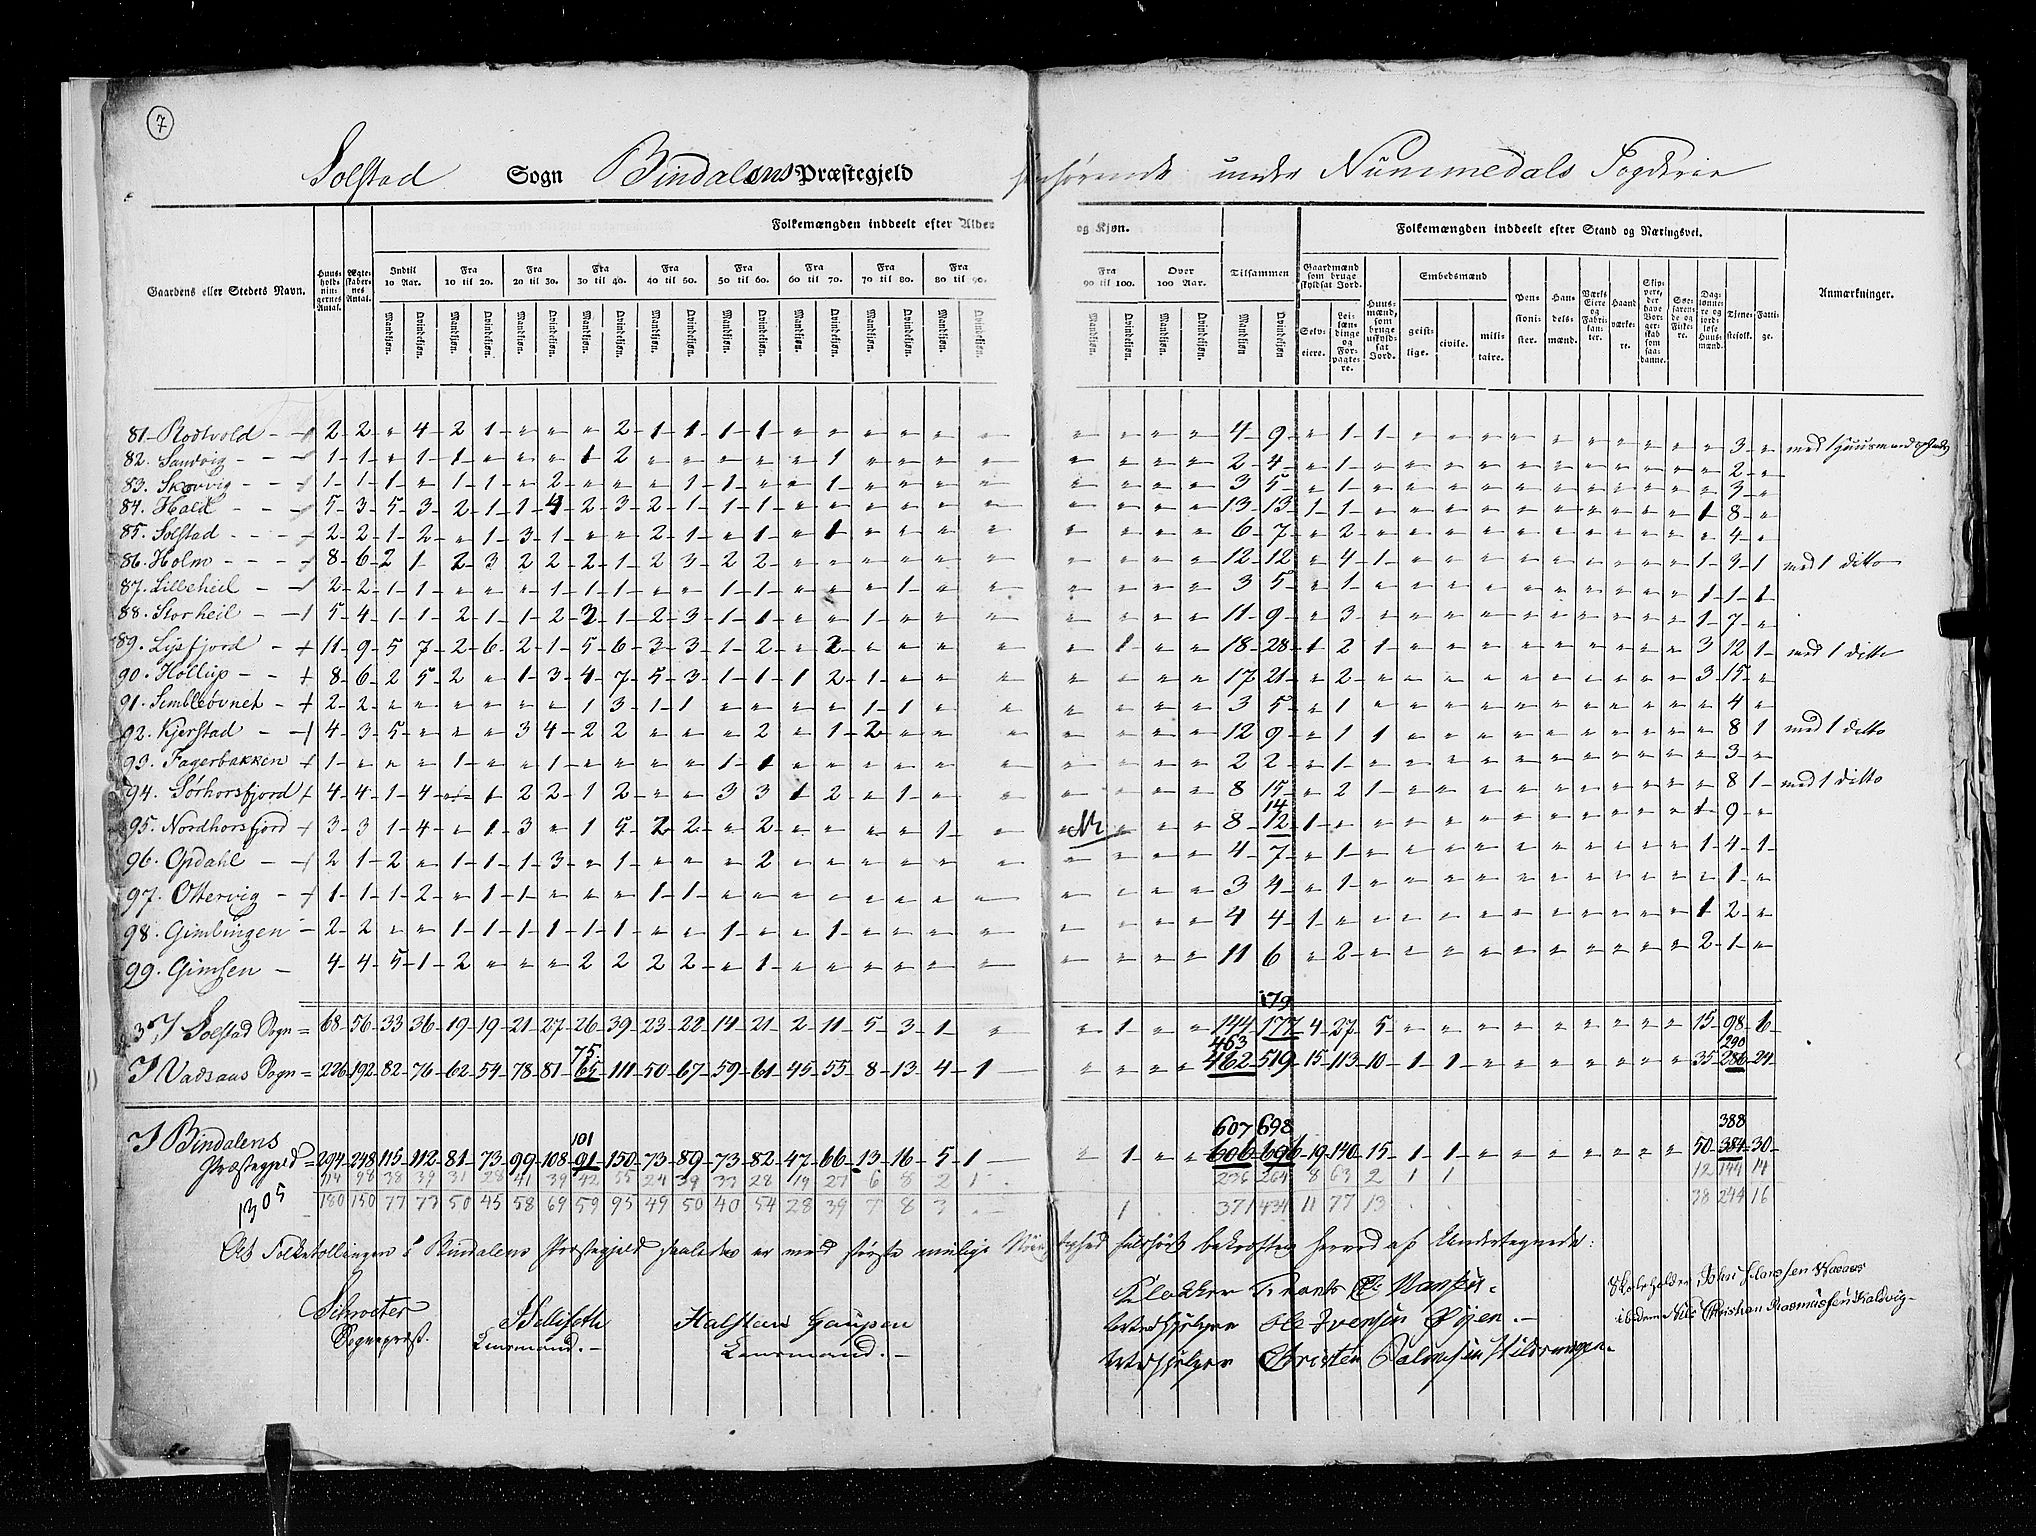 7
Solstad Sogn Bindalens Præstegjeld henhørende under Nummedals Fogderie
Folkemængden inddeelt efter Alder og Kjøn.
Folkemængden inddeelt efter Stand og Næringsvei.
Gaardens eller Stedets Navn.
Huusholdningernes Antal.
Ægteskabernes Antal.
Indtil 10 Aar.
Fra 10 til 20.
Fra 20 til 30.
Fra 30 til 40.
Fra 40 til 50.
Fra 50 til 60.
Fra 60 til 70.
Fra 70 til 80.
Fra 80 til 90.
Fra 90 til 100.
Over 100 Aar.
Tilsammen
Mandkjøn. Qvindekjøn.
Gaardmænd som bruge skyldsat Jord.
Selveiere.
Leilændinge og Forpagtere.
Huusmænd, som bruge uskyldsat Jord.
Embedsmænd
geistlige. civile. militaire.
Pensionister.
Handelsmænd.
Værks Eiere og Fabrikanter.
Haandværkere.
Skippere, der have Borgerskab som saadanne.
Søefarende og Fiskere.
Daglønnere og jordløse Huusmænd.
Tjenestefolk.
Fattige.
Anmærkninger.
81. Rodtvold 2 2 " 4 2 1 " " " 2 1 1 1 1 " " " " " " " " " " 4 9 " 1 1 " " " " " " " " " " 3 " med 1 Huusmandsplads
82. Sandvig 1 1 " 1 1 " " " 1 2 " " " " " 1 " " " " " " " " 2 4 " 1 " " " " " " " " " " " 2 "
83. Skovvig 1 1 1 " 1 1 " 2 " " " 1 1 " " 1 " " " " " " " " 3 5 " 1 " " " " " " " " " " " 3 "
84. Hald 5 3 5 3 2 1 1 4 2 3 2 1 1 1 " " " " " " " " " " 13 13 1 1 " " " " " " " " " " 1 8 "
85. Solstad 2 2 1 2 " 1 3 1 " " 2 1 " 1 " 1 " " " " " " " " 6 7 " 2 " " " " " " " " " " " 4 "
86. Holm 8 6 2 1 2 3 2 2 2 1 2 3 2 2 " " " " " " " " " " 12 12 " 4 1 " " " " " " " " " 1 9 1 med 1 ditto
87. Lilleheil 2 2 1 1 " " " 1 1 1 " " 1 1 " " " 1 " " " " " " 3 5 " 1 " " " " " " " " " " 1 1 1
88. Storheil 5 4 1 1 2 1 1 2 3 1 2 3 1 1 " " 1 " " " " " " " 11 9 " 3 " " " " " " " " " " 1 7 "
89. Lysfjord 11 9 5 7 2 6 2 1 5 6 3 3 1 2 " 2 " " " " " 1 " " 18 28 1 2 1 " " " " " " " " " 3 12 1 med 1 ditto
90. Hollup 8 6 2 5 2 " 1 3 4 7 5 3 1 1 1 2 1 " " " " " " " 17 21 " 2 " " " " " " " " " " 3 15 "
91. Simbleøvnet 2 2 " " " " " " 1 3 1 1 " " " " 1 1 " " " " " " 3 5 " 1 " " " " " " " " " " " 4 "
92. Kjerstad 4 3 5 " " " 3 4 2 2 " " " 2 " 1 2 " " " " " " " 12 9 " 1 1 " " " " " " " " " " 8 1 med 1 ditto
93. Fagerbakken 1 " " " 1 " " 1 " " " " 1 1 " " " " " " " " " " 2 2 " 1 " " " " " " " " " " " 3 "
94. Sørhorsfjord 4 4 1 4 " 1 2 2 1 2 " " 3 3 1 2 " 1 " " " " " " 8 15 " 2 1 " " " " " " " " " " 8 1 med 1 ditto
14
95. Nordhorsfjord 3 3 1 4 " 1 3 " 1 5 2 2 " 2 " " " " 1 " " " " " 8 12 1 " " " " " " " " " " " 1 9 "
96. Opdahl 2 1 2 " 1 1 1 3 " 1 " " " 2 " " " " " " " " " " 4 7 " 1 " " " " " " " " " " 1 4 1
97. Ottervig 1 1 1 2 " 1 1 " " " 1 1 " " " " " " " " " " " " 3 4 " 1 " " " " " " " " " " " 1 "
98. Gimlingen 2 2 " " 1 1 1 1 1 1 " " 1 " " 1 " " " " " " " " 4 4 1 " " " " " " " " " " " 1 2 "
99. Gimsen 4 4 5 1 2 " " " 2 2 2 2 " 1 " " " " " " " " " " 11 6 " 2 " " " " " " " " " " 2 1 "
179
I Solstad Sogn = 68 56 33 36 19 19 21 27 26 39 23 22 14 21 2 11 5 3 1 " " 1 " " 144 177 4 27 5 " " " " " " " " " 15 98 6
75 463 290
I Vadsaas Sogn = 226 192 82 76 62 54 78 81 65 111 50 67 59 61 45 55 8 13 4 1 " " " " 462 519 15 113 10 1 1 " " " " " " " 35 286 24
101 607 698 388
I Bindalens Præstegjeld = 294 248 115 112 81 73 99 108 91 150 73 89 73 82 47 66 13 16 5 1 " 1 " " 606 696 19 140 15 1 1 " " " " " " " 50 384 30
114 98 38 39 31 28 41 39 42 55 24 39 33 28 19 27 6 8 2 1 236 264 8 63 2 1 1 12 144 14
1305
180 150 77 73 50 45 58 69 59 95 49 50 40 54 28 39 7 8 3 1 371 434 11 77 13 38 244 16
At Folketællingen i Bindalens Præstegjeld saaledes er med største mulige Nøiagtighed udført bekræftes herved af Undertegnede:
Schroeter
Sognepræst.
Sellisøth
Lensmand.
Halstan Gaupen
Lensmand.
Klokker
Medhjelper Ole Iversen Øyen.
Medhjelper Christen
Skoleholder John Hansen
ibidem Nils Christian Rasmussen Kaldvig